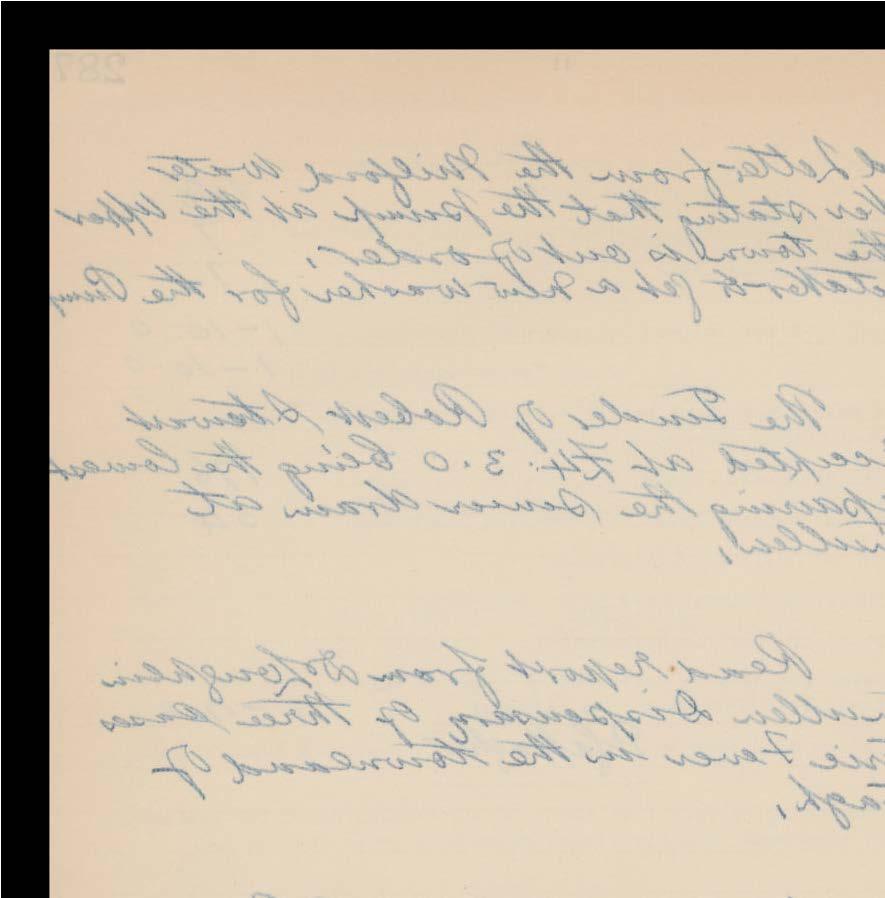 287
Letter from the Milford Water
stating that the pump at the upper
the town is out of order.
to get a new washer for the Pump
The Tender of Robert Stewart
at £4.3.0 being the lowest
the sewer drain at
Read report from Dr Loughlin
Dispensary of three cases
Fever in the townland of